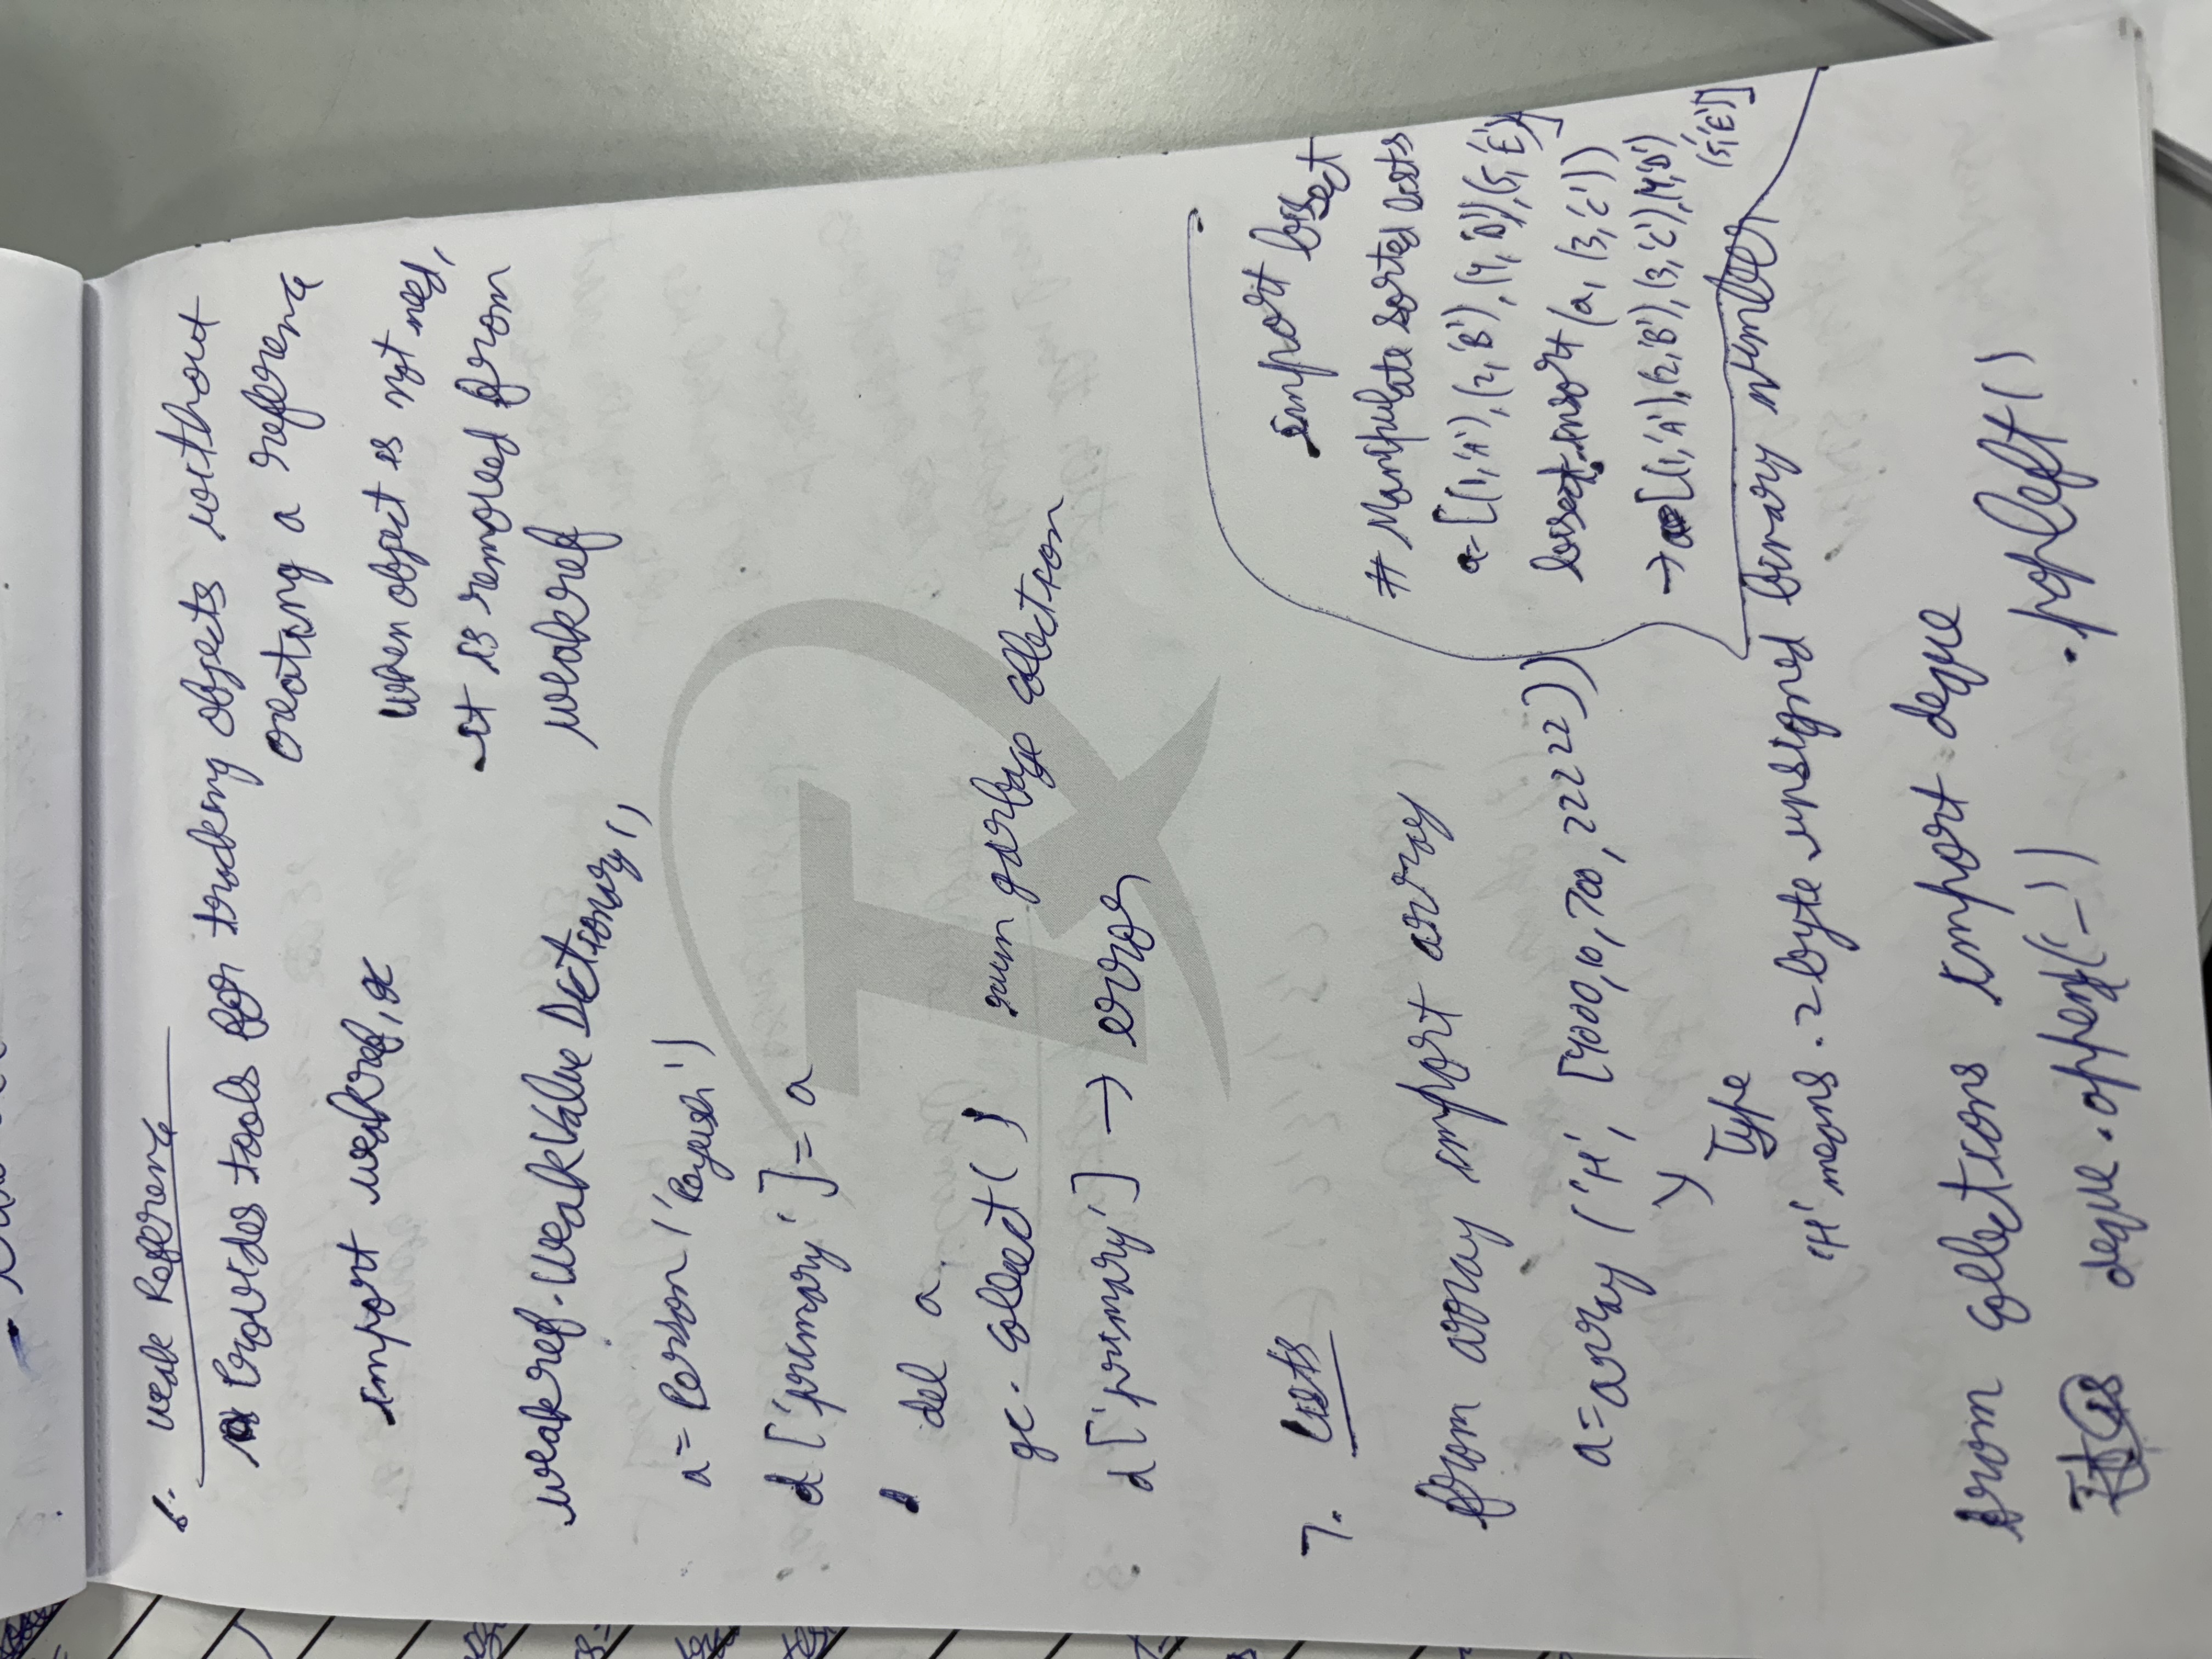 6. Weak Reference
Provides tools for tracking objects without
creating a reference
import weakref, gc
when object is not need,
it is removed from
weakref
weakref.WeakValueDictionary()
a = Person('Payush')
d['primary'] = a
del a.
gc.collect() run garbage collection
d['primary'] → error
7. Lists
from array import array
a = array('H', [4000, 10, 700, 22222])
Type
'H' means . 2 byte unsigned binary number
import bisect
# Manipulate sorted lists
a = [(1,'A'), (2,'B'), (4,'D'), (5,'E')]
bisect.insort(a, (3,'C'))
→ a = [(1,'A'), (2,'B'), (3,'C'), (4,'D'),
(5,'E')]
from collections import deque
deque.append('_') .popleft()